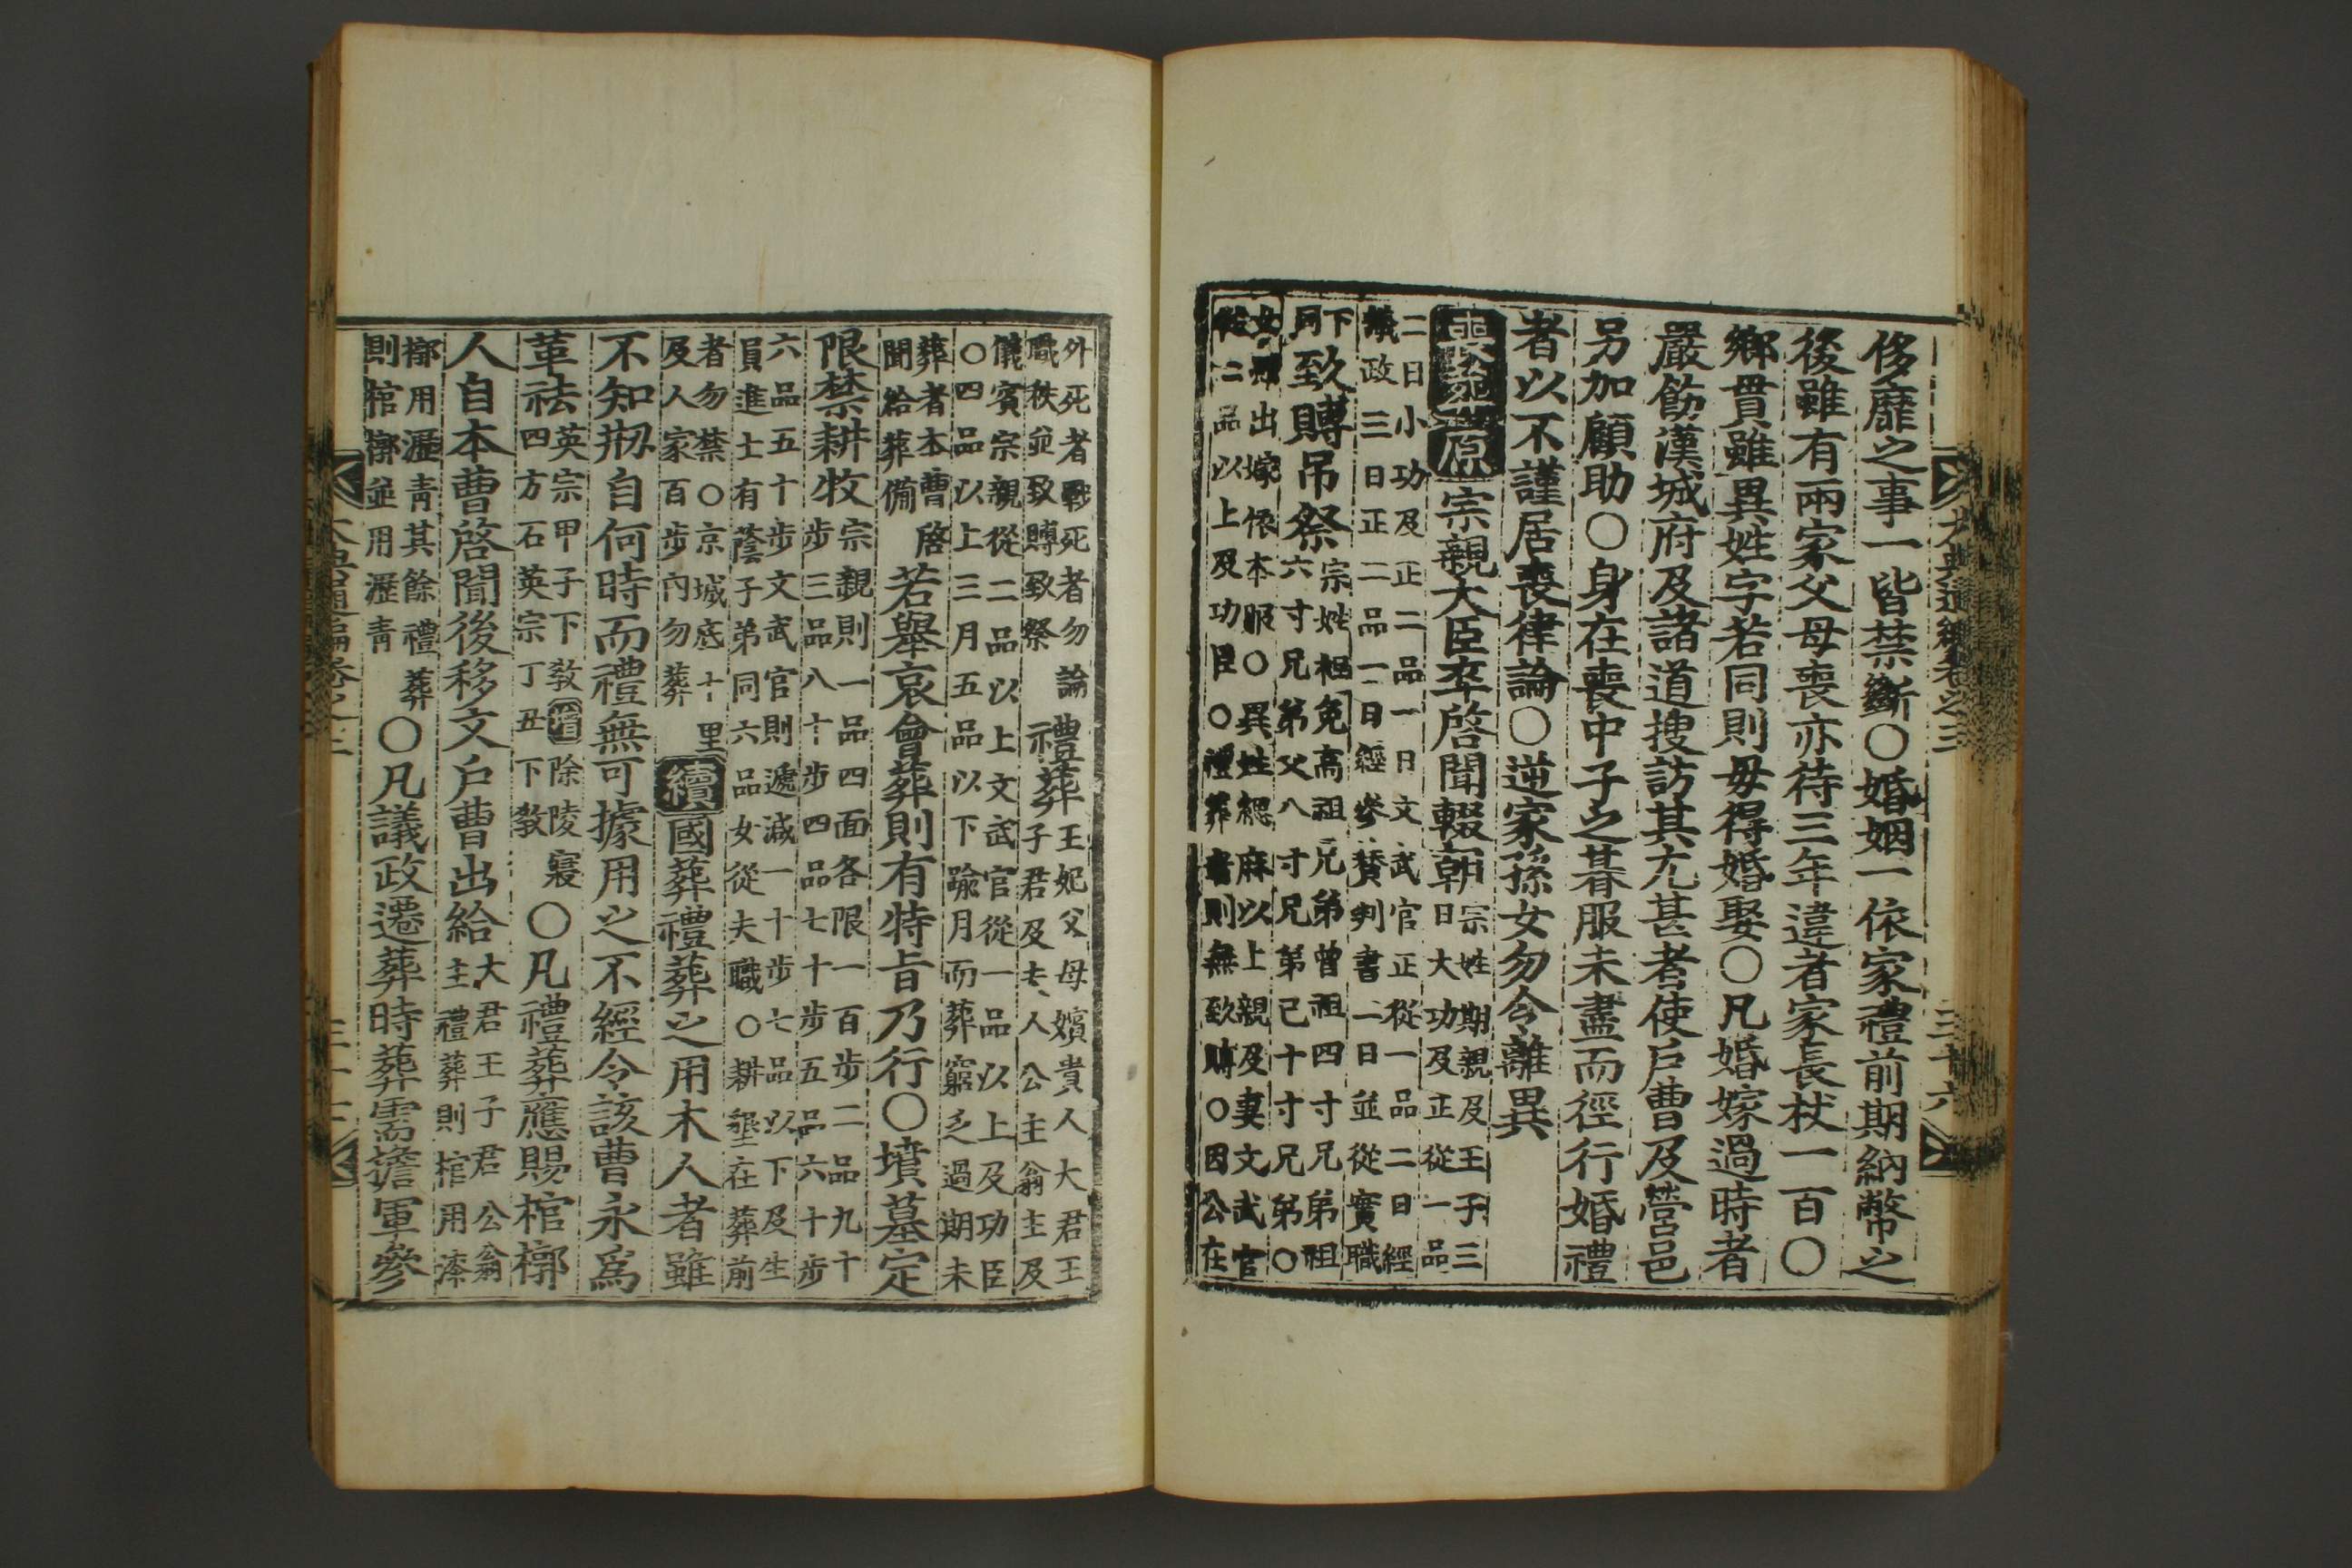 侈靡之事一皆禁斷○婚姻一依家禮前期納幣之
後雖有兩家父母喪亦待三年違者家長杖一百○
鄉貫雖異姓字若同則毋得婚娶○凡婚嫁過時者
嚴飭漢城府及諸道搜訪其尤甚者使戶曹及營邑
另加顧助○身在喪中子之朞服未盡而徑行婚禮
者以不謹居喪律論○逆家孫女勿令離異
喪葬原宗親大臣卒啓聞輟朝宗姓期親及王子三
日大功及正從一品
二日小功及正二品一日文武官正從一品二日經
議政三日正二品一日經參贊判書一日並從實職
致賻吊祭宗姓袒免高祖兄弟曾祖四寸兄弟祖
六寸兄弟父八寸兄弟己十寸兄弟○
下同
女雖出嫁依本服○異姓緦麻以上親及妻文武官
從二品以上及功臣○禮葬者則無致賻○因公在
大典通編卷之三
三十六
外死者戰死者勿論
職秩並致賻致祭
禮葬王妃父母嬪貴人大君王
子君及夫人公主翁主及
儀賓宗親從二品以上文武官從一品以上及功臣
○四品以上三月五品以下踰月而葬窮乏過期未
葬者本曹啓
聞給葬備
若舉哀會葬則有特旨乃行○墳墓定
限禁耕牧宗親則一品四面各限一百步二品九十
步三品八十步四品七十步五品六十步
六品五十步文武官則遞減一十步七品以下及生
員進士有蔭子弟同六品女從夫職○耕墾在葬前
者勿禁○京城底十里
及人家百步內勿葬
續國葬禮葬之用木人者雖
不知刱自何時而禮無可據用之不經令該曹永爲
革祛英宗甲子下敎增除陵寢
四方石英宗丁丑下敎
○凡禮葬應賜棺槨
人自本曹啓聞後移文戶曹出給大君王子君公翁
主禮葬則棺用漆
槨用瀝靑其餘禮葬
則棺槨並用瀝靑
○凡議政遷葬時葬需擔軍參